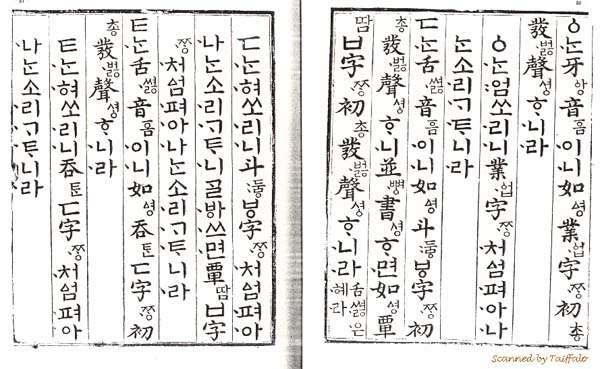 ㆁᄂᆞᆫ牙ᅌᅡᆼ音ᅙᅳᆷ이니如ᅀᅧᆼ業ᅌᅥᆸ字ᄍᆞᆼ初총
發벓聲셩ᄒᆞ니라
ㆁᄂᆞᆫ엄쏘리니業ᅌᅥᆸ字ᄍᆞᆼ처ᅀᅥᆷ펴아나
ᄂᆞᆫ소리ᄀᆞᄐᆞ니라
ㄷᄂᆞᆫ舌쎯音ᅙᅳᆷ이니如ᅀᅧᆼ斗두ᇢㅸ字ᄍᆞᆼ初
총發벓聲셩ᄒᆞ니並뼝書셩ᄒᆞ면如ᅀᅧᆼ覃
땀ㅂ字ᄍᆞᆼ初총發벓聲셩ᄒᆞ니라舌쎯은혜라
ㄷᄂᆞᆫ혀쏘리니斗두ᇢㅸ字ᄍᆞᆼ처ᅀᅥᆷ펴아
나ᄂᆞᆫ소리ᄀᆞᄐᆞ니ᄀᆞᆯᄫᅡ쓰면覃땀ㅂ字
ᄍᆞᆼ처ᅀᅥᆷ펴아나ᄂᆞᆫ소리ᄀᆞᄐᆞ니라
ㅌᄂᆞᆫ舌쎯音ᅙᅳᆷ이니如ᅀᅧᆼ呑ᄐᆞᆫㄷ字ᄍᆞᆼ初
총發벓聲셩ᄒᆞ니라
ㅌᄂᆞᆫ혀쏘리니呑ᄐᆞᆫㄷ字ᄍᆞᆼ처ᅀᅥᆷ펴아
나ᄂᆞᆫ소리ᄀᆞᄐᆞ니라
Scanned by Taiffalo